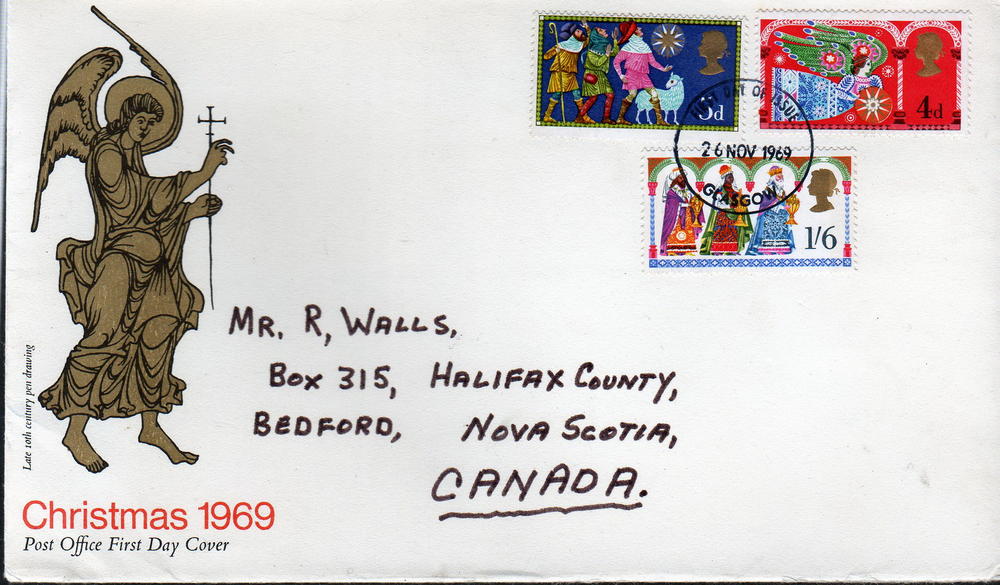 5d
4d
FIRST DAY OF ISSUE
26 NOV 1969
GLASGOW
1/6
MR. R, WALLS,
BOX 315, HALIFAX COUNTY,
BEDFORD, NOVA SCOTIA,
CANADA.
Late 10th century pen drawing
Christmas 1969
Post Office First Day Cover